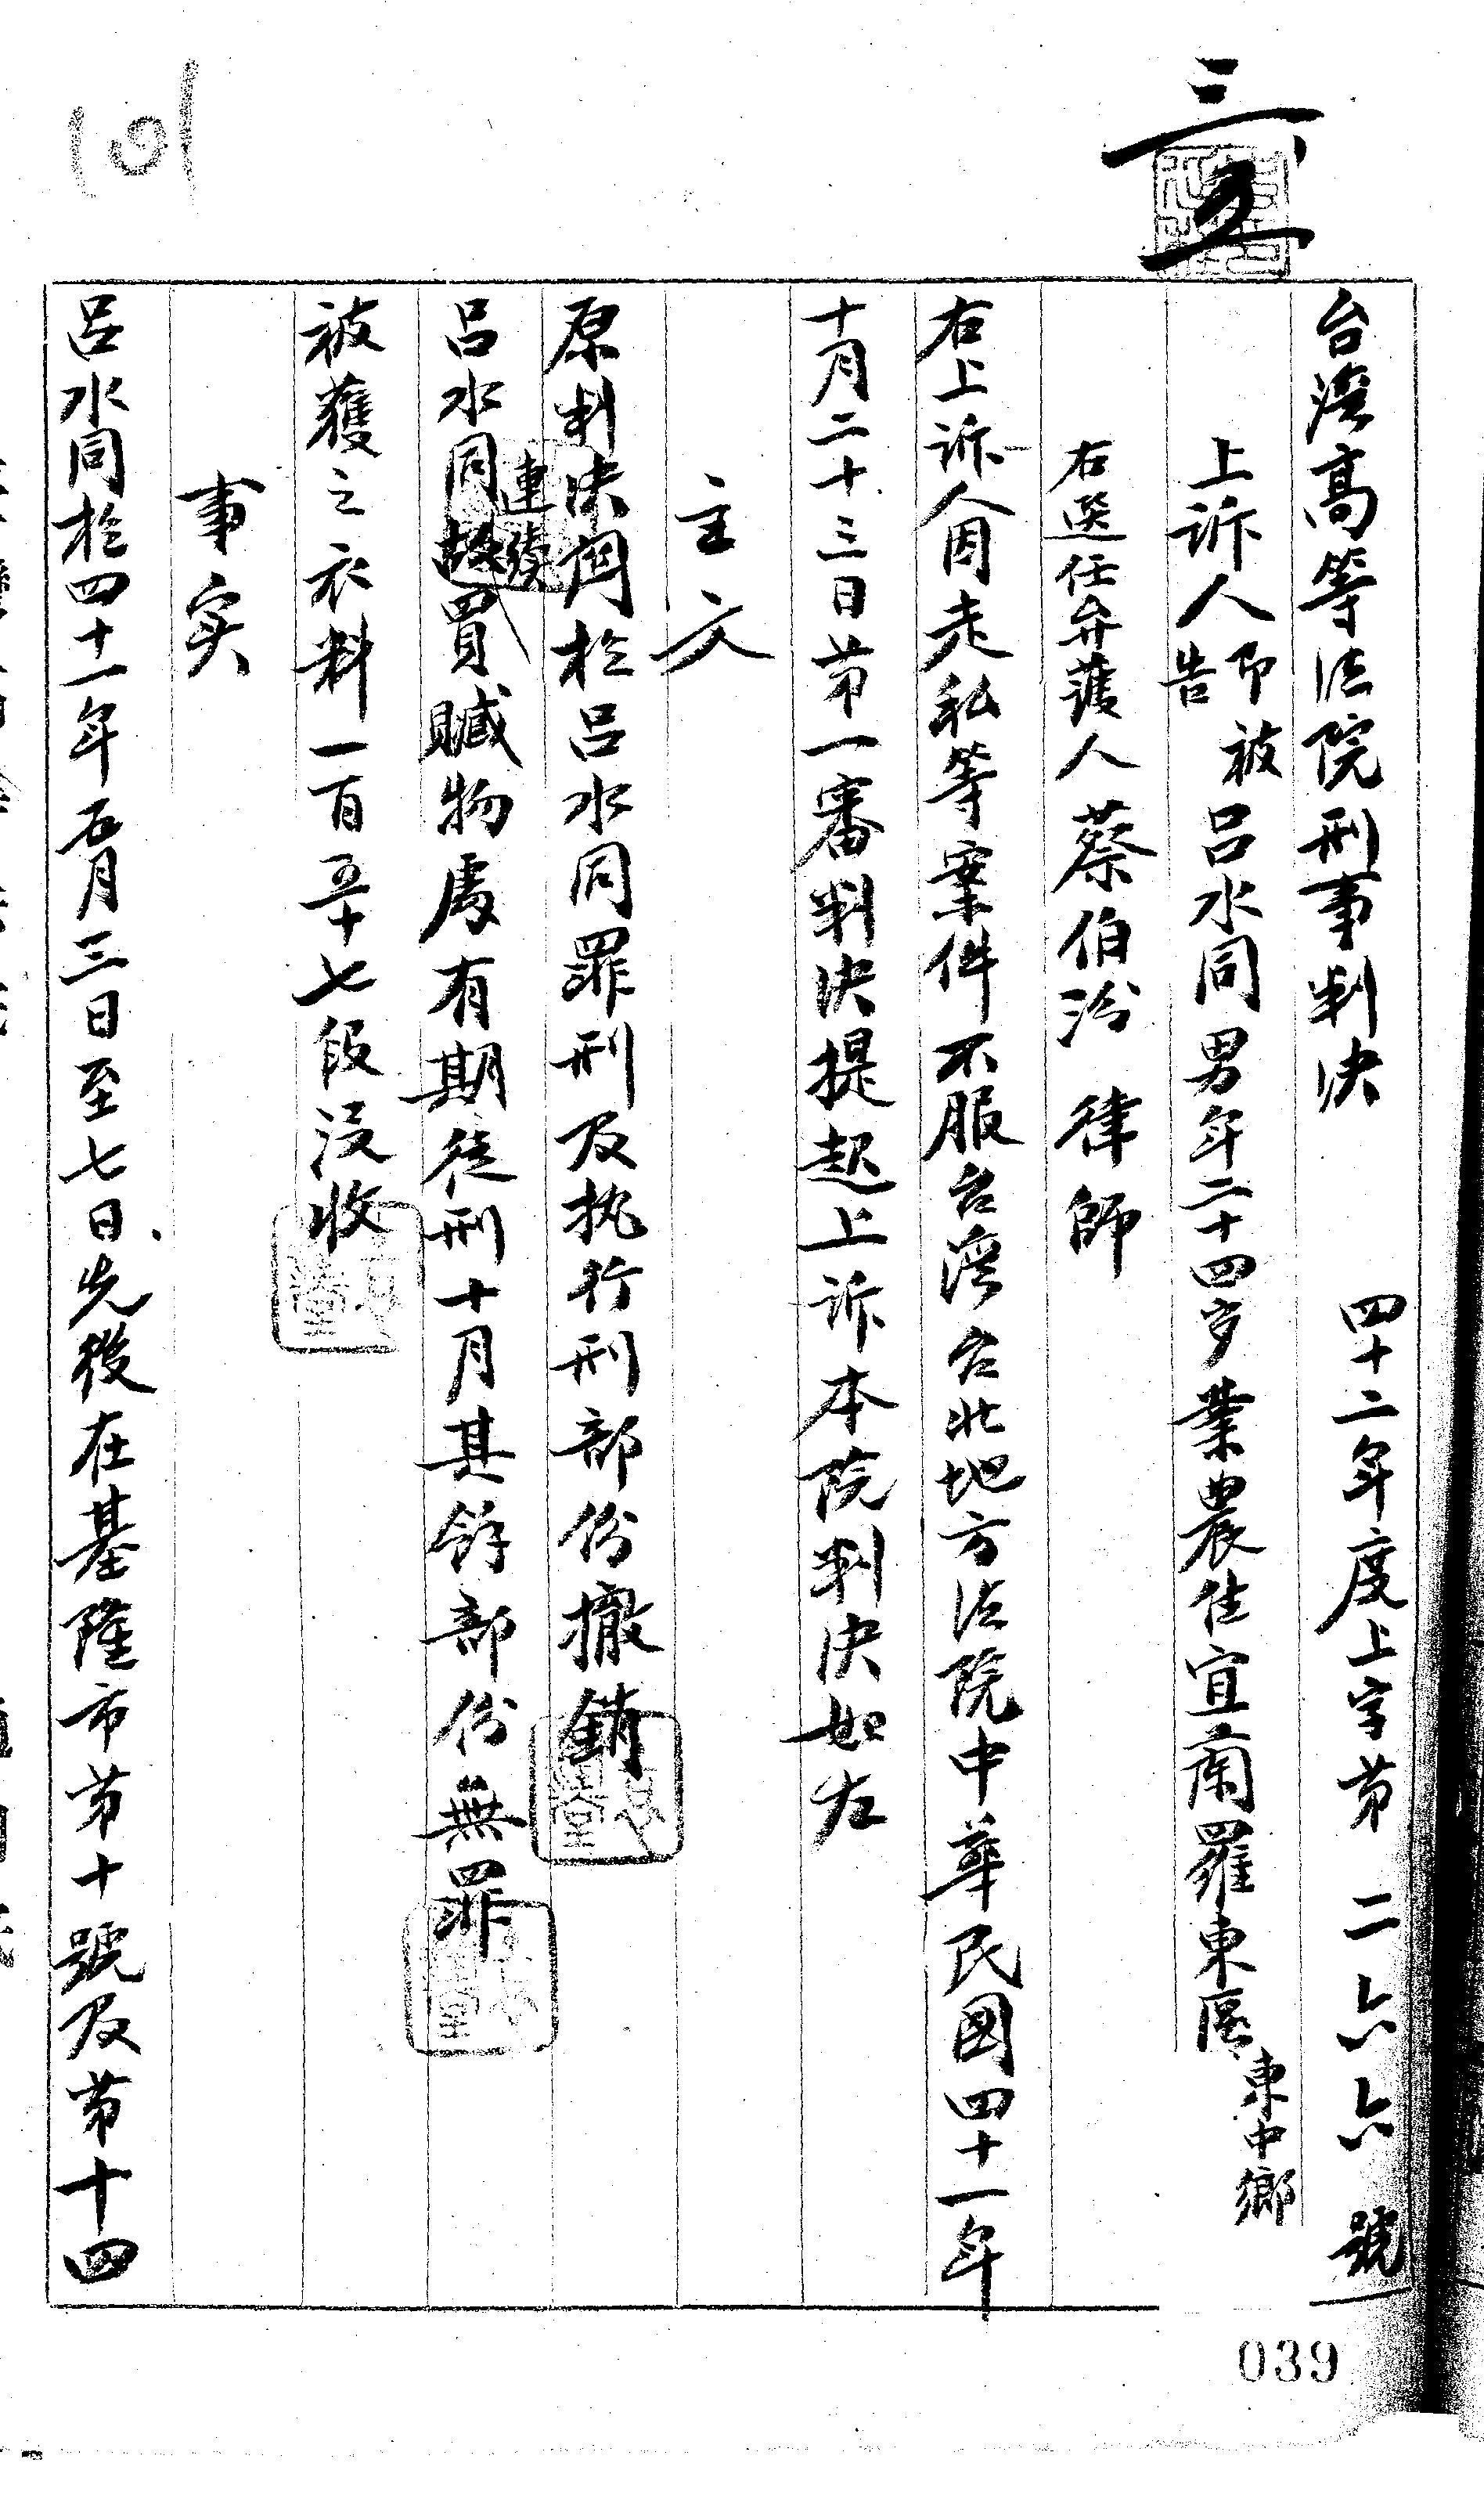 三
台湾高等法院刑事判决 四十二年度上字第二六六號
上诉人即被告 吕水同 男年二十四岁業農住宜蘭羅東區東中鄉
右選任弁護人蔡伯汾律師
右上诉人因走私等案件不服台湾台北地方法院中華民國四十一年
十月二十三日第一審判决提起上诉本院判决如左
主文
原判决関於吕水同罪刑及执行刑部份撤銷
吕水同連續故買贓物處有期徒刑十月其餘部份無罪
被獲之衣料一百五十七段没收
事実
吕水同於四十一年五月三日至七日先後在基隆市第十號及第十四
039